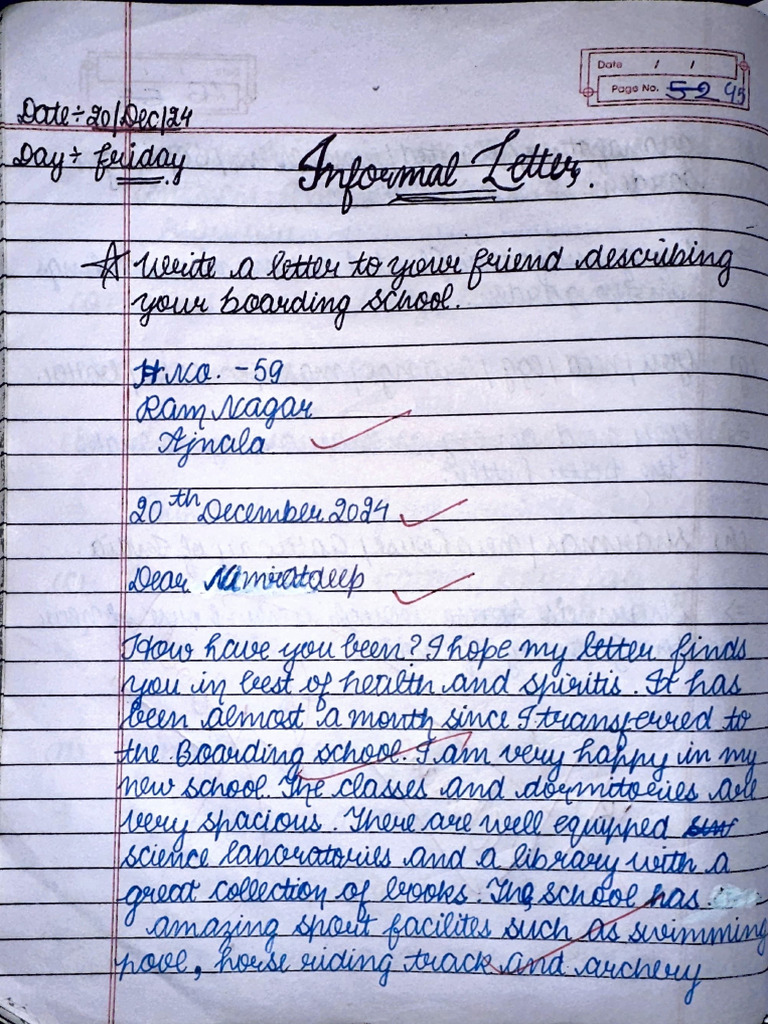 Date / /
Page No. 52 45
Date÷20/Dec/24
Day÷ friday
Informal Letter.
☆ Write a letter to your friend describing
your boarding school.
H.No. -59
Ram Nagar
Ajnala
20th December 2024
Dear Namratdeep
How have you been? I hope my letter finds
you in best of health and spiritis. It has
been almost a month since I transferred to
the Boarding school. I am very happy in my
new school. The classes and dormitories are
very spacious. There are well equipped
science laboratories and a library with a
great collection of books. The school has
amazing sport facilites such as swimming
pool, horse riding track and archery